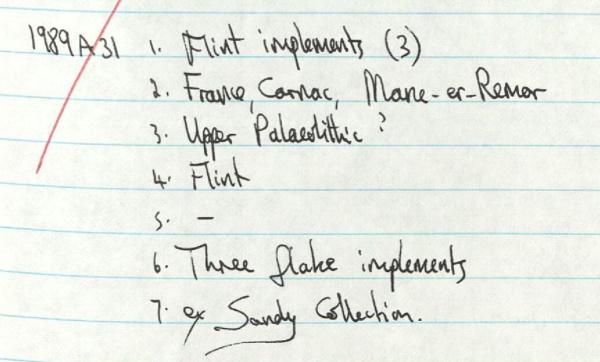 1989 A 31 1. Flint implements (3)
2. France, Carnac, Mane-er-Remor
3. Upper Palaeolithic?
4. Flint
5. –
6. Three flake implements
7. ex Sandy Collection.